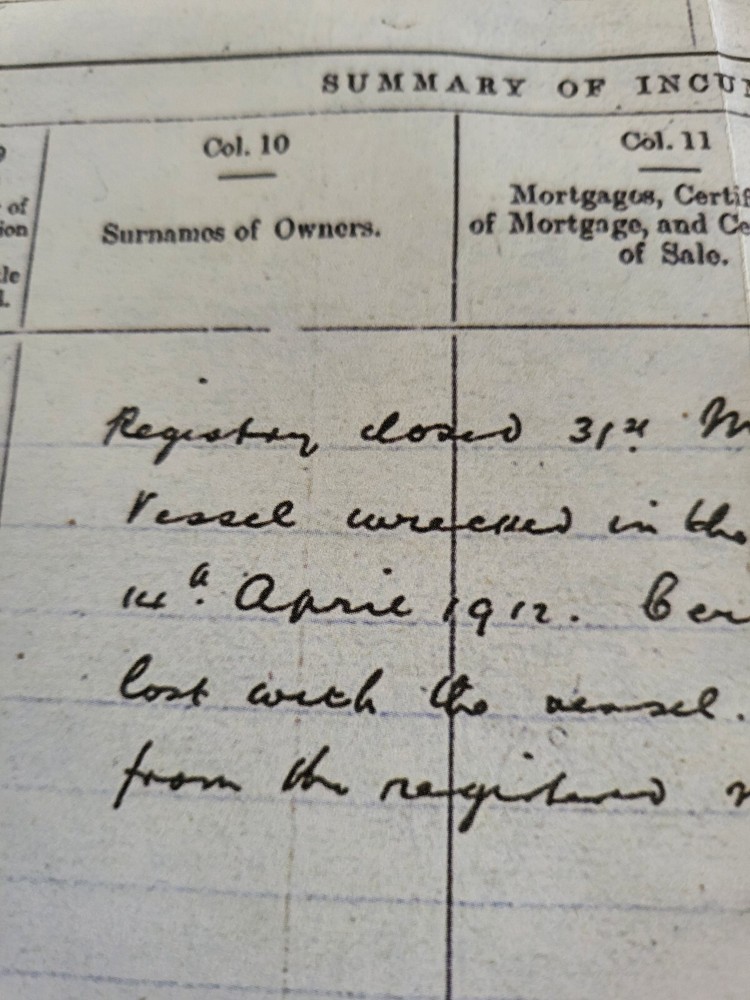 SUMMARY OF INCUM
of
ion
le
l.
Col. 10
Surnames of Owners.
Col. 11
Mortgages, Certif
of Mortgage, and Ce
of Sale.
Registry closed 31st M
Vessel wrecked in the
14th April 1912. Cer
lost with the vessel.
from the registered